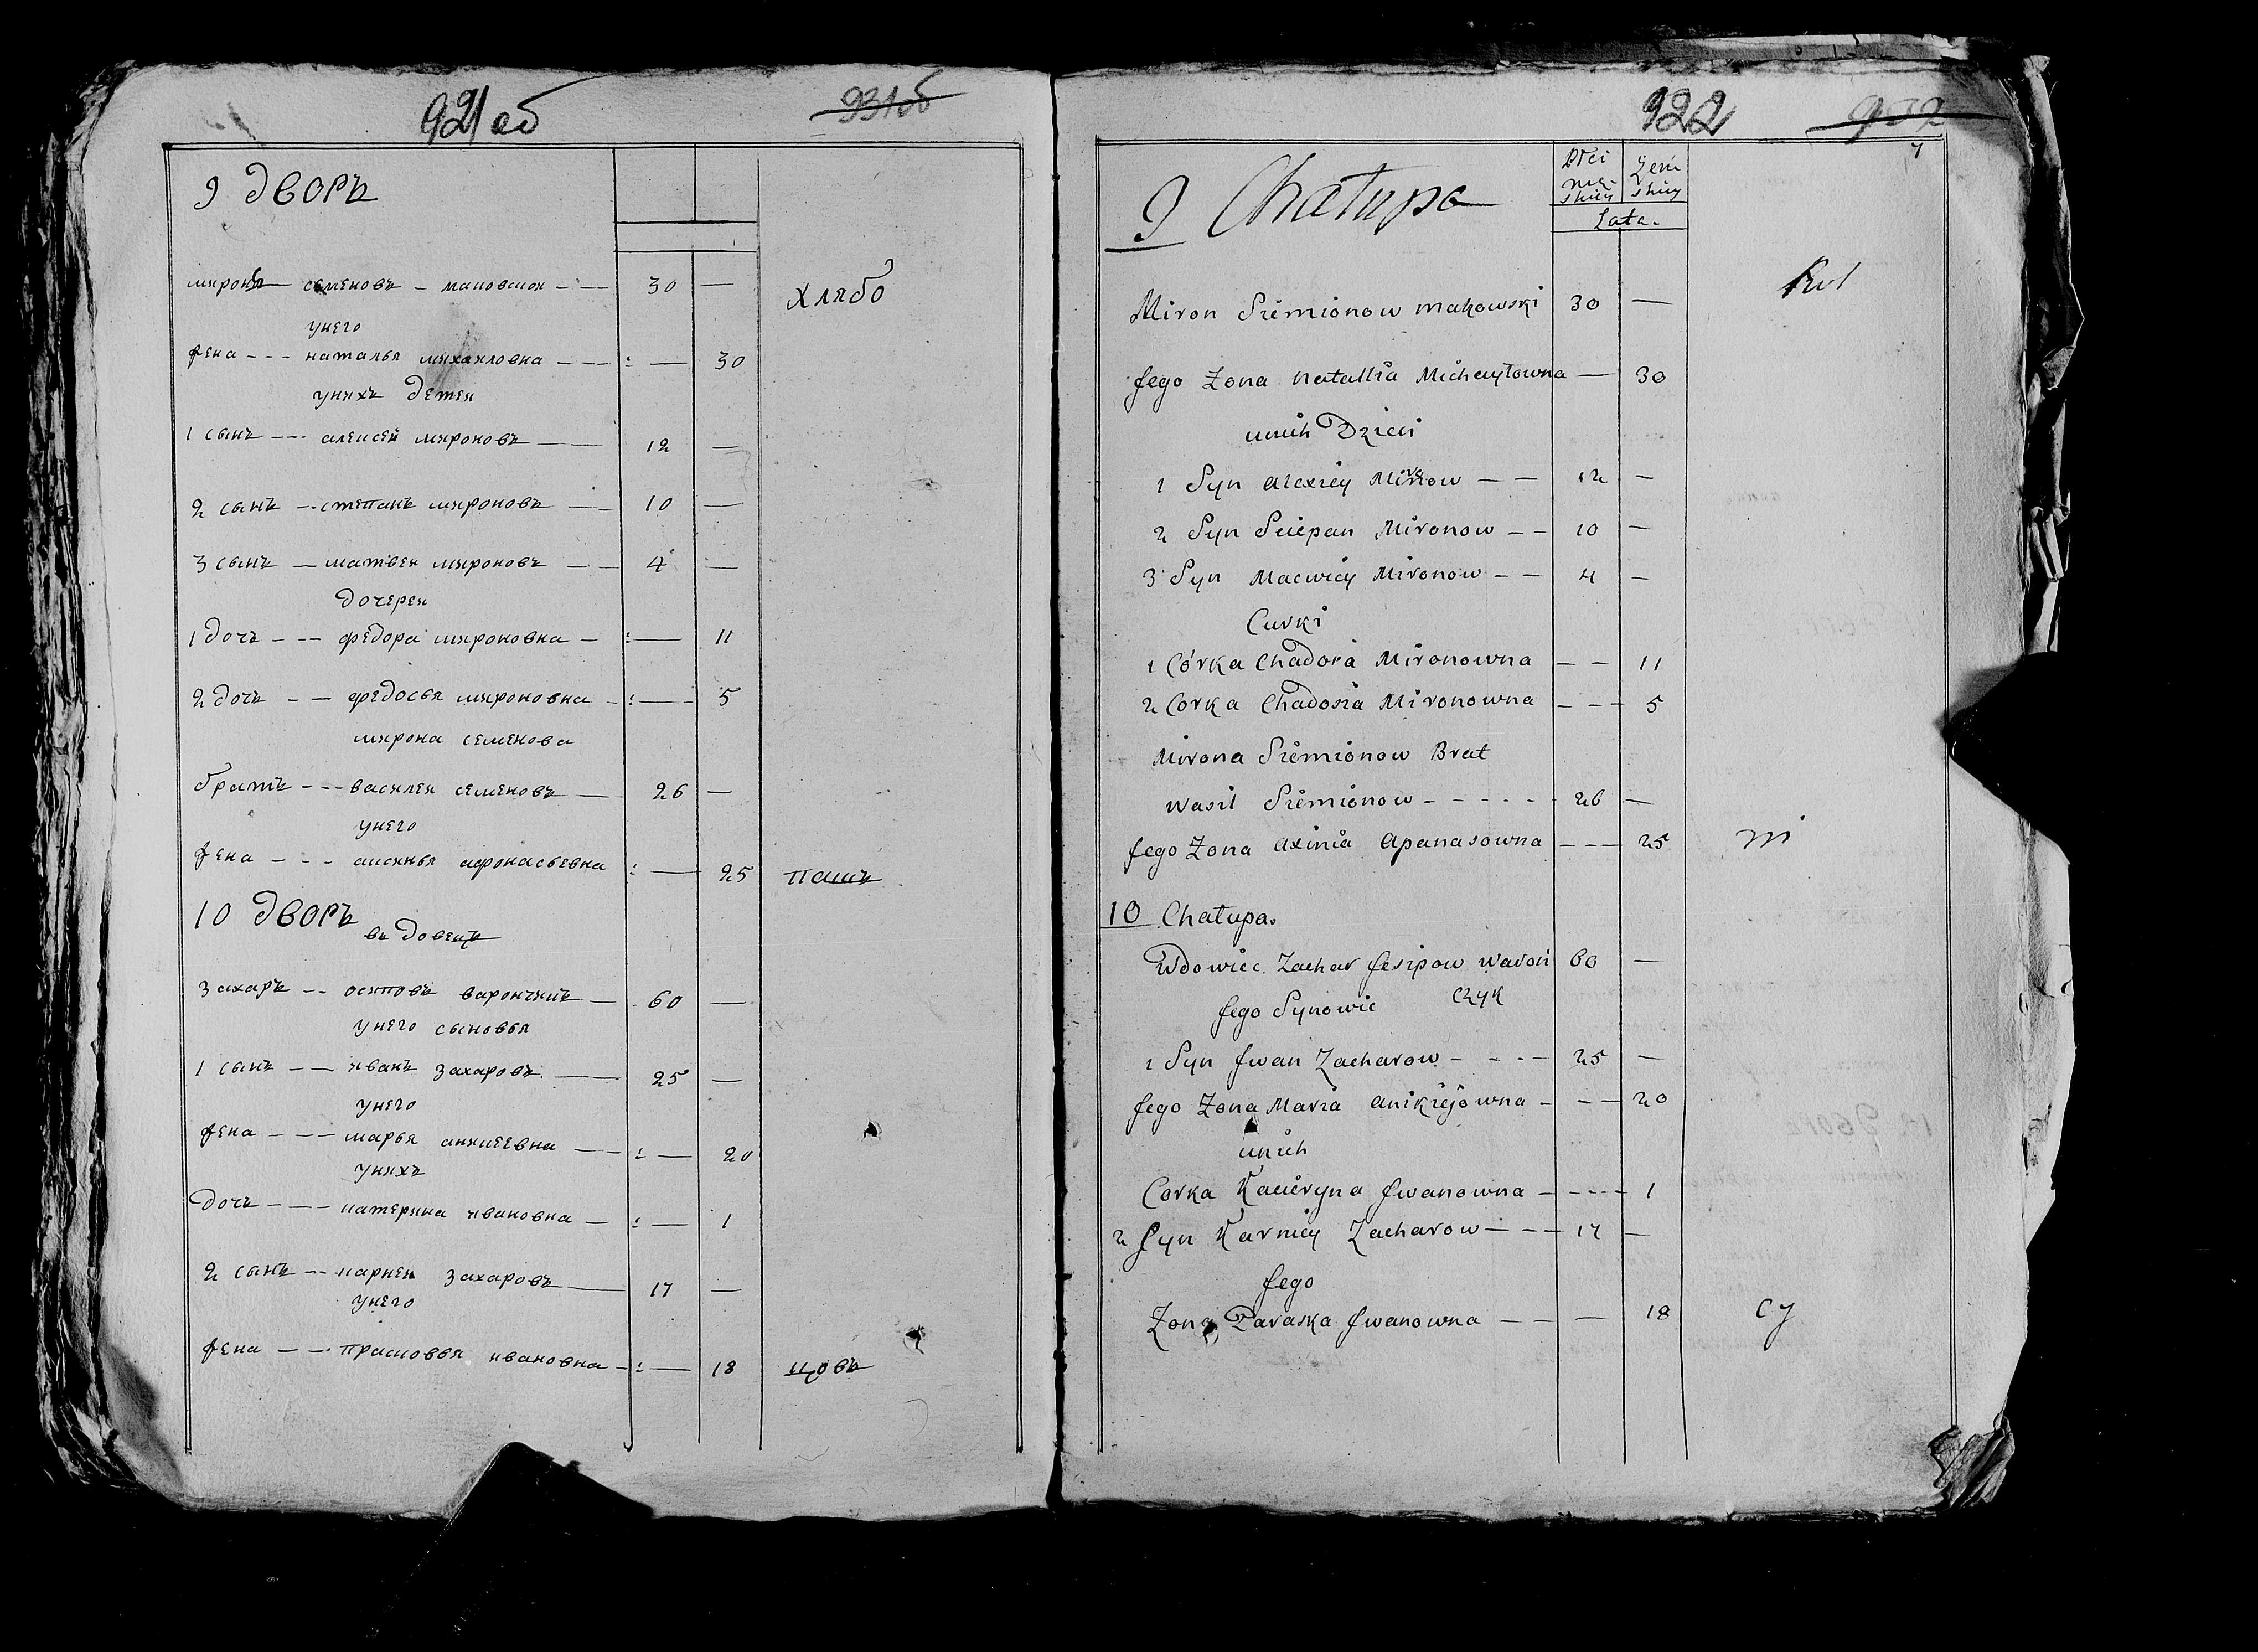 921 об 931 об
9 ДВОРЪ
миронъ семеновъ – маковскои – — 30 —
унего
жена - - - наталья михаиловна — — : — 30
унихъ детеи
1 сынъ --- алексеи мироновъ — — 12 —
2 сынъ -- степанъ мироновъ — — 10 —
3 сынъ — матвеи мироновъ — — 4 —
дочереи
1 дочь - -- федора мироновна — : — 11
2 дочь - — федосья мироновна - : — 5
мирона семенова
братъ - -- василеи семеновъ — 26 —
унего
жена - - - аксинья афонасьевна : — 25
10 ДВОРЪ
вдовецъ
захаръ -- осиповъ варончикъ — 60 —
унего сыновья
1 сынъ - — иванъ захаровъ. — 25 —
унего
жена - - — марья аникеевна — — : — 20
унихъ
дочь - - — катерина ивановна — : — 1
2 сынъ -- карнеи захаровъ — 17 —
унего
жена - — прасковья ивановна - : — 18
хлябо
пашъ
цовъ
922 932
7
9 Chałupa
Zeń
skiey
Lata.
Miron Siemionow makowski 30 —
Jego Zona natallia Michayłowna — 30
unich Dzieci
1 Syn alexiey Mironow — — 12 —
2 Syn Sciepan Mironow — — 10 —
3 Syn Maciwiey Mironow — — 4 —
Curki
1 Córka Chadora Mironowna — — 11
2 Corka Chadosia Mironowna - - - 5
Mirona Siemionow Brat
Wasil Siemionow - - - - - 26 —
Jego Zona axinia apanasowna - - — 25
10 Chałupa.
Wdowiec Zachar Jesipow waron 60 —
Jego Synowie czyk
1 Syn Jwan Zacharow - - - - 25 —
Jego Zona Maria anikiejowna - - — 20
unich
Corka Kacieryna Jwanowna - - - - - 1
2 Syn Karniey Zacharow — - — 17 —
Jego
Zona Paraska Jwanowna — — — 18
Rol
ni
cy